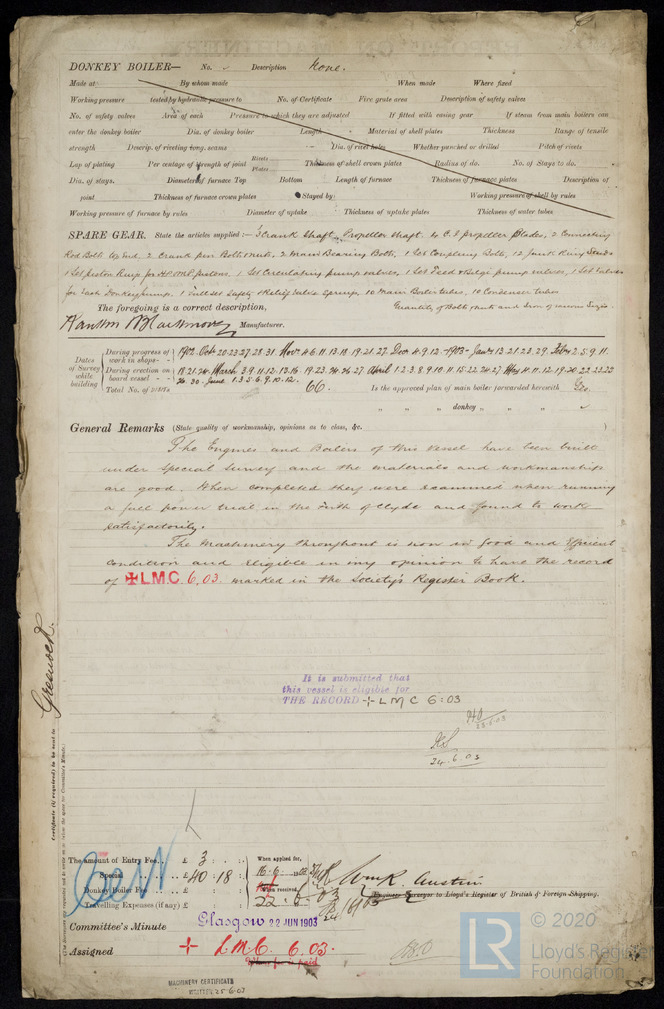 DONKEY BOILER— No. Description None.
Made at By whom made When made Where fixed
Working pressure tested by hydraulic pressure to No. of Certificate Fire grate area Description of safety valves
No. of safety valves Area of each Pressure to which they are adjusted If fitted with easing gear If steam from main boilers can
enter the donkey boiler Dia. of donkey boiler Length Material of shell plates Thickness Range of tensile
strength Descrip. of riveting long. seams Dia. of rivet holes Whether punched or drilled Pitch of rivets
Lap of plating Per centage of strength of joint Rivets Plates Thickness of shell crown plates Radius of do. No. of Stays to do.
Dia. of stays. Diameter of furnace Top Bottom Length of furnace Thickness of furnace plates Description of
joint Thickness of furnace crown plates Stayed by Working pressure of shell by rules
Working pressure of furnace by rules Diameter of uptake Thickness of uptake plates Thickness of water tubes
SPARE GEAR. State the articles supplied:— Crank Shaft, Propeller shaft. 4 C.I propeller blades, 2 Connecting
Rod Bolts top End, 2 Crank pin Bolts & nuts, 2 Main Bearing Bolts, 1 Set Coupling Bolts, 12 Junk Ring Studs
1 Set piston Rings for pistons, 1 Set Circulating pump valves, 1 Set Feed & Bilge pump valves, 1 Set Valves
for Each Donkey pump. 1 Safety & Relief Valve Springs, 10 Main Boiler tubes, 10 Condenser tubes
Quantity of Bolts, nuts and Iron of various Sizes
The foregoing is a correct description,
Rankin & Blackmore Manufacturer.
Dates of Survey while building
During progress of work in shops - - 1902. Oct. 20.23.27.28.31. Nov. 4.6.11.13.18.19.21.27. Dec. 4.9.12.—1903— Jan. 13.21.23.29. Feb. 2.5.9.11.
During erection on board vessel - - 18.21.24. March 3.9.11.12.13.16.19.23.24.26.27 April 1.2.3.8.9.10.11.15.22.24.27 May 4.11.12.19.20.22.23.25
26.30. June 1.3.5.6.9.10.12.
Total No. of visits 66. Is the approved plan of main boiler forwarded herewith Yes.
" " donkey " " "
General Remarks (State quality of workmanship, opinions as to class, &c.
The Engines and Boilers of this vessel have been built
under Special Survey and the materials and workmanship
are good. When completed they were examined when running
a full power trial in the Firth of Clyde and found to work
satisfactorily.
The Machinery throughout is now in good and Efficient
condition and eligible in my opinion to have the record
of ✠LMC. 6.03. marked in the Society's Register Book.
It is submitted that
this vessel is eligible for
THE RECORD + LMC 6:03
23.6.03
24.6.03
Greenock
Certificate (if required) to be sent to
The amount of Entry Fee.. £ 3 : :
Special .. £ 40 : 18 :
Donkey Boiler Fee .. £ : :
Travelling Expenses (if any) £ : :
When applied for,
16.6.03
When received,
22.6.03
Wm R. Austin
Engineer Surveyor to Lloyd's Register of British & Foreign Shipping.
Committee's Minute Glasgow 22 JUN 1903
Assigned + L.M.C. 6.03.
MACHINERY CERTIFICATE
WRITTEN 25.6.03
LR
© 2020
Lloyd's Register
Foundation